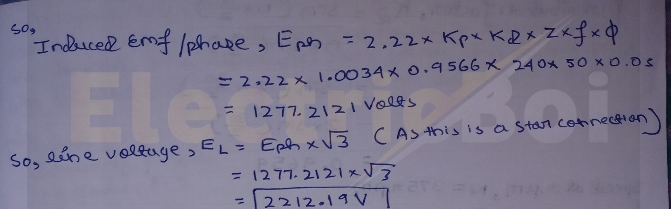 So,
Induced Emf/phase, Eph = 2.22 x Kp x Kd x Z x f x Φ
= 2.22 x 1.0034 x 0.9566 x 240 x 50 x 0.05
= 1277.2121 Volts
So, line voltage, EL = Eph x √3 (As this is a star connection)
= 1277.2121 x √3
= 2212.19 V
ElectricBoi